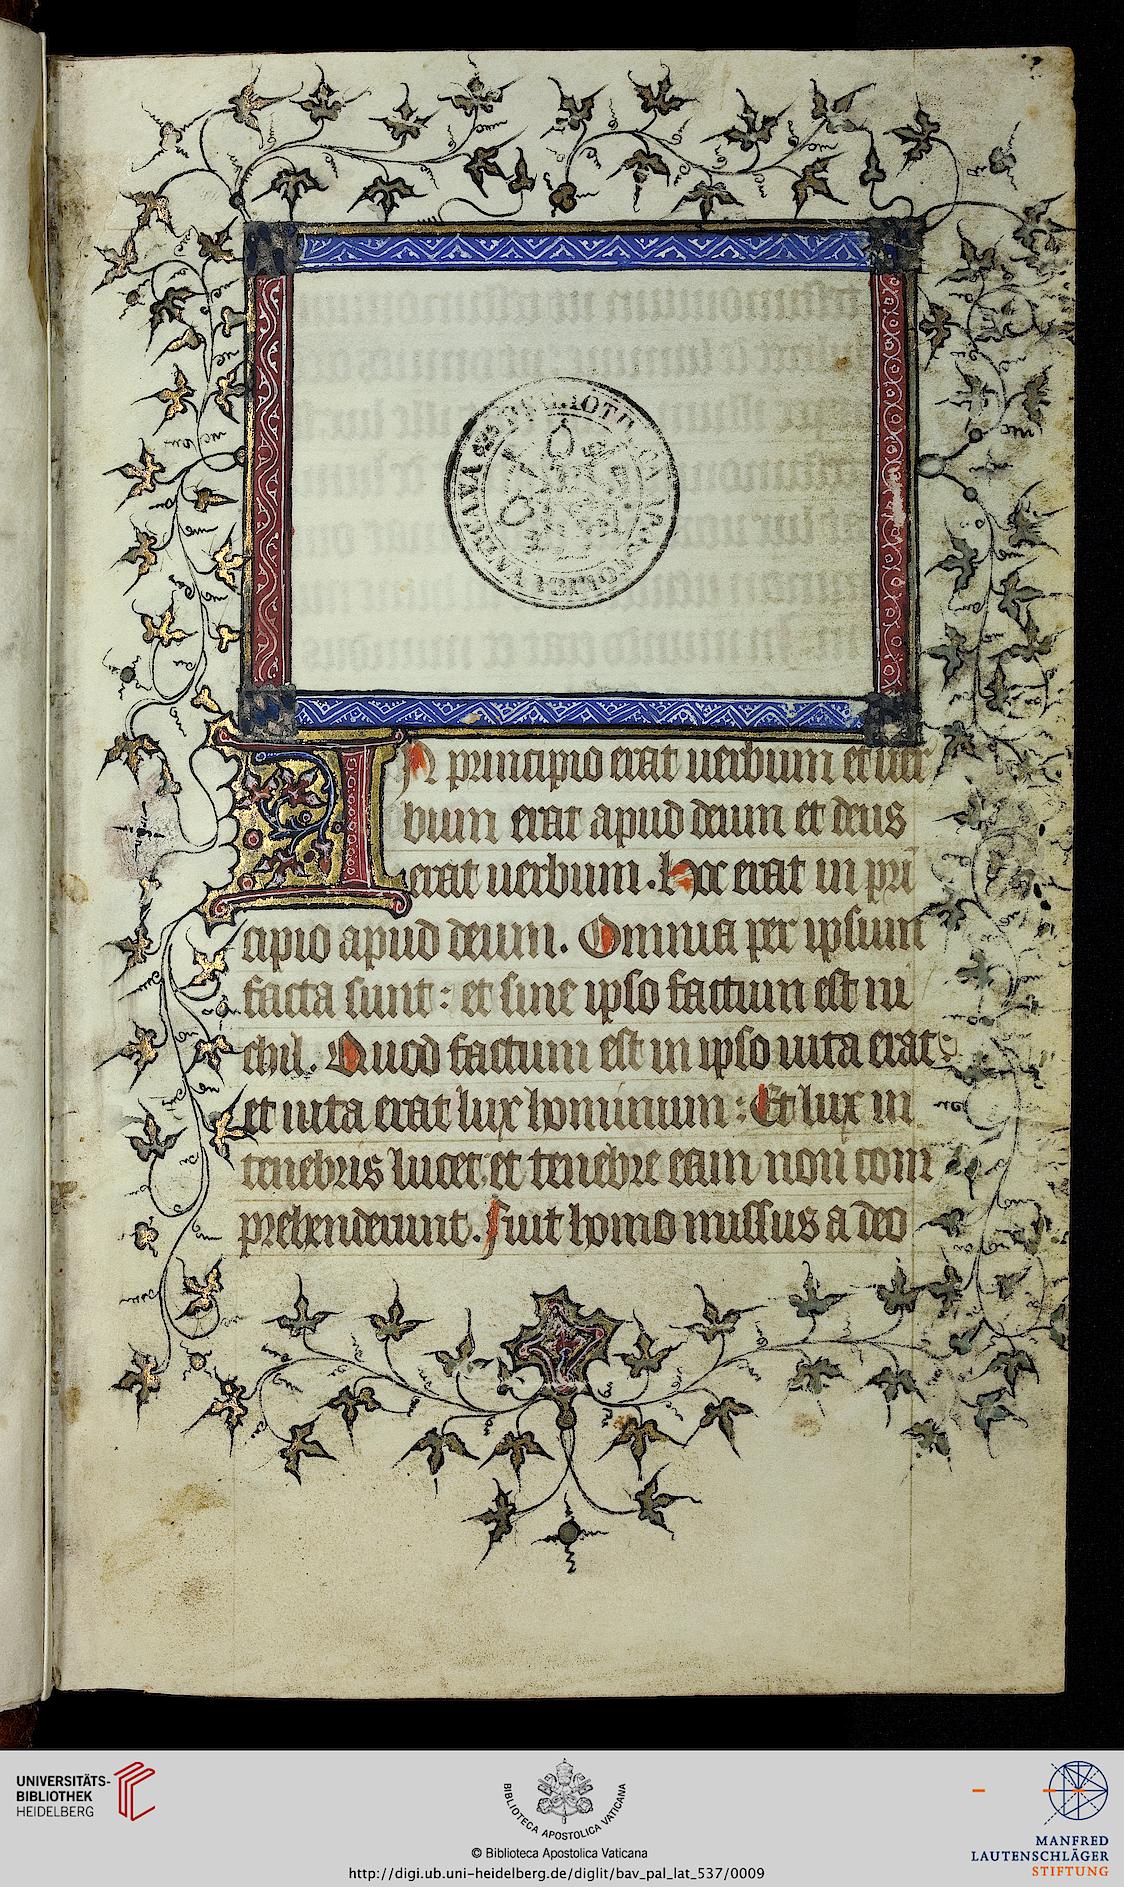 BIBLIOTECA APOSTOLICA VATICANA
In principio erat uerbum et uer
bum erat apud deum et deus
erat uerbum. Hoc erat in pri
cipio apud deum. Omnia per ipsum
facta sunt: et sine ipso factum est ni
chil. Quod factum est in ipso uita erat
et uita erat lux hominum: Et lux in
tenebris lucet et tenebre eam non com
prehenderunt. Fuit homo missus a deo
UNIVERSITÄTS-
BIBLIOTHEK
HEIDELBERG
BIBLIOTECA APOSTOLICA VATICANA
© Biblioteca Apostolica Vaticana
http://digi.ub.uni-heidelberg.de/diglit/bav_pal_lat_537/0009
MANFRED
LAUTENSCHLÄGER
STIFTUNG